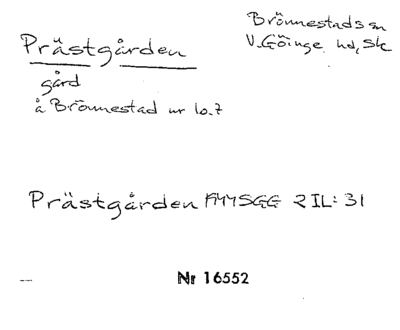 Prästgården
Brönnestads sn
V. Göinge hd, Sk
gård
å Brönnestad nr 10.7
Prästgården 2 IL: 31
Nr 16552